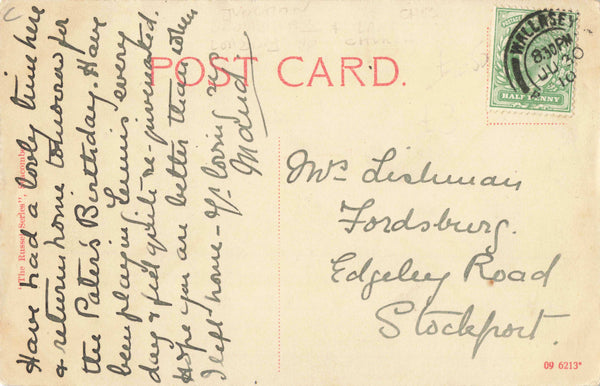 POST CARD.
Have had a lovely time here
& return home tomorrow for
the Pater's Birthday. Have
been playing Tennis every
day & feel quite re-juvinated.
Hope you are better than when
I left home - Yr loving Sis
Maud
Mrs Lishman
Fordsburg.
Edgeley Road
Stockport.
WALLASEY
8.30 PM
JU 30
10
HALFPENNY
"The Russet Series",
09 6213*